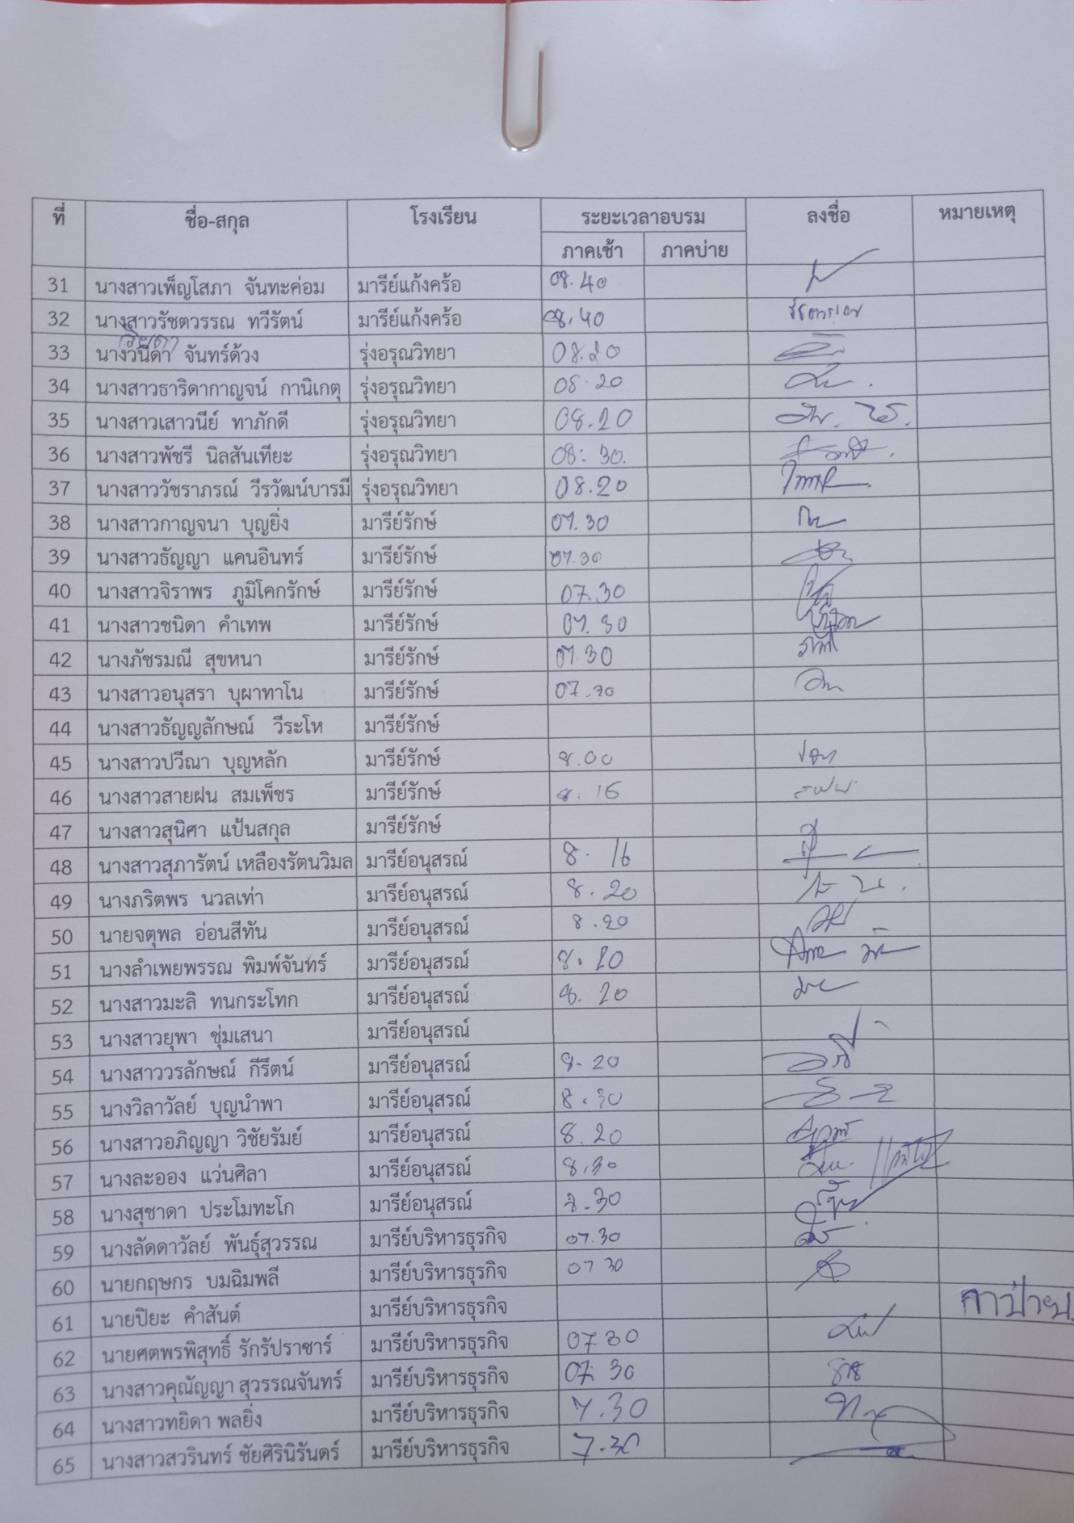 ที่ ชื่อ-สกุล โรงเรียน ระยะเวลาอบรม ลงชื่อ หมายเหตุ
ภาคเช้า ภาคบ่าย
31 นางสาวเพ็ญโสภา จันทะค่อม มารีย์แก้งคร้อ 08.40
32 นางสาวรัชตวรรณ ทวีรัตน์ มารีย์แก้งคร้อ 08.40
33 นางวนิดา จันทร์ด้วง รุ่งอรุณวิทยา 08.20
34 นางสาวธาริดากาญจน์ กานิเกตุ รุ่งอรุณวิทยา 08.20
35 นางสาวเสาวนีย์ ทาภักดี รุ่งอรุณวิทยา 08.20
36 นางสาวพัชรี นิลสันเทียะ รุ่งอรุณวิทยา 08:30.
37 นางสาววัชราภรณ์ วีรวัฒน์บารมี รุ่งอรุณวิทยา 08.20
38 นางสาวกาญจนา บุญยิ่ง มารีย์รักษ์ 07.30
39 นางสาวธัญญา แคนอินทร์ มารีย์รักษ์ 07.30
40 นางสาวจิราพร ภูมิโคกรักษ์ มารีย์รักษ์ 07.30
41 นางสาวชนิดา คำเทพ มารีย์รักษ์ 07.30
42 นางภัชรมณี สุขหนา มารีย์รักษ์ 07.30
43 นางสาวอนุสรา บุผาทาโน มารีย์รักษ์ 07.30
44 นางสาวธัญญลักษณ์ วีระโห มารีย์รักษ์
45 นางสาวปวีณา บุญหลัก มารีย์รักษ์ 8.00
46 นางสาวสายฝน สมเพ็ชร มารีย์รักษ์ 8.16
47 นางสาวสุนิศา แป้นสกุล มารีย์รักษ์
48 นางสาวสุภารัตน์ เหลืองรัตนวิมล มารีย์อนุสรณ์ 8.16
49 นางภริตพร นวลเท่า มารีย์อนุสรณ์ 8.20
50 นายจตุพล อ่อนสีทัน มารีย์อนุสรณ์ 8.20
51 นางลำเพยพรรณ พิมพ์จันทร์ มารีย์อนุสรณ์ 8.20
52 นางสาวมะลิ ทนกระโทก มารีย์อนุสรณ์ 8.20
53 นางสาวยุพา ชุ่มเสนา มารีย์อนุสรณ์
54 นางสาววรลักษณ์ กีรีตน์ มารีย์อนุสรณ์ 8.20
55 นางวิลาวัลย์ บุญนำพา มารีย์อนุสรณ์ 8.30
56 นางสาวอภิญญา วิชัยรัมย์ มารีย์อนุสรณ์ 8.20
57 นางละออง แว่นศิลา มารีย์อนุสรณ์ 8.30
58 นางสุชาดา ประโมทะโก มารีย์อนุสรณ์ 8.30
59 นางลัดดาวัลย์ พันธุ์สุวรรณ มารีย์บริหารธุรกิจ 07.30
60 นายกฤษกร บมฉิมพลี มารีย์บริหารธุรกิจ 07 30
61 นายปิยะ คำสันต์ มารีย์บริหารธุรกิจ ลาป่วย
62 นายศตพรพิสุทธิ์ รักรัปราชาร์ มารีย์บริหารธุรกิจ 07 30
63 นางสาวคุณัญญา สุวรรณจันทร์ มารีย์บริหารธุรกิจ 07 30
64 นางสาวทยิดา พลยิ่ง มารีย์บริหารธุรกิจ 7.30
65 นางสาวสวรินทร์ ชัยศิรินิรันดร์ มารีย์บริหารธุรกิจ 7.30